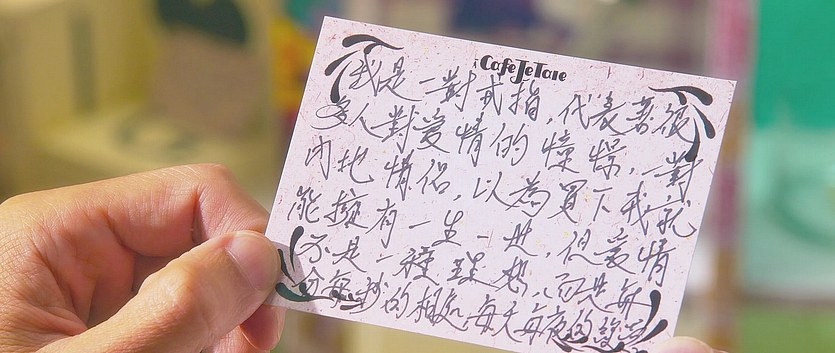 CafeTeTale
我是一對戒指,代表著很
多人對愛情的憧憬,一對
內地情侶,以為買下我就
能擁有一生一世,但愛情
不是一種理想,而是每
分每秒的相處,每天每夜的